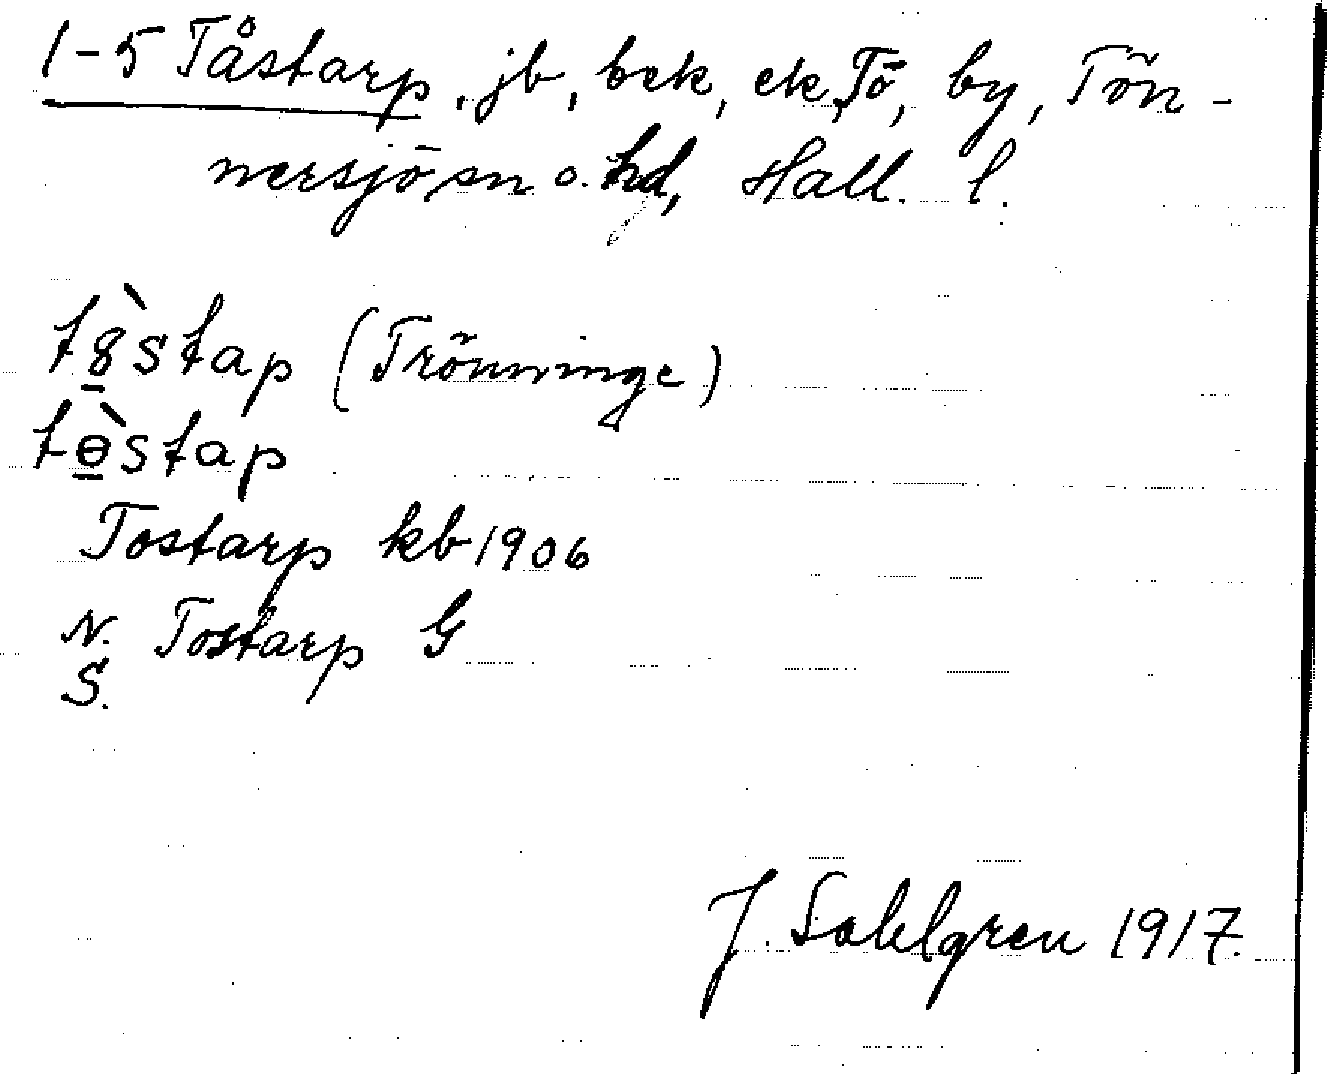 1-5 Tåstarp, jb, bek, ek, Tö, by, Tön-
nersjö sn o. hd, Hall. l.
tȣ̱̀stap (Trönninge)
tɵ̱̀stap
Tostarp kb 1906
N. Tostarp G
S.
J. Sahlgren 1917.